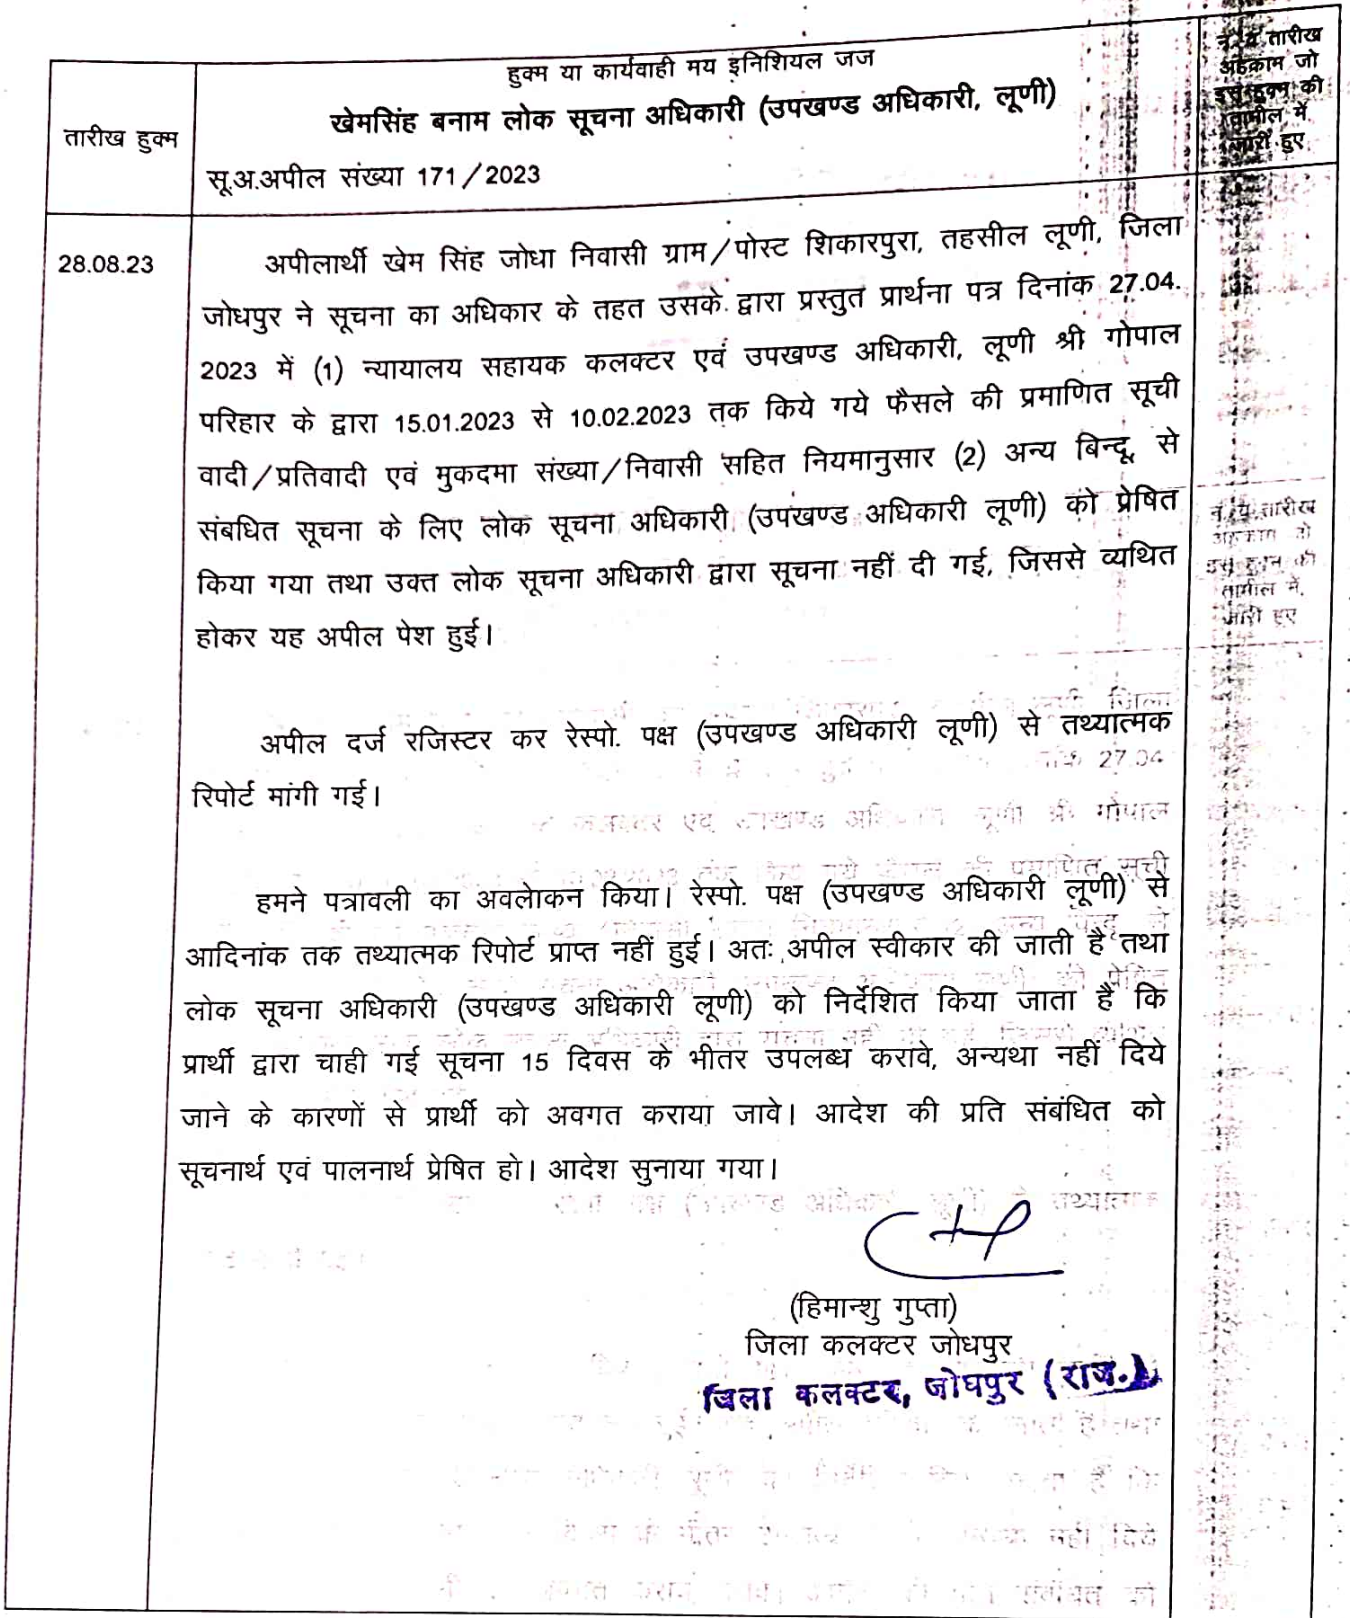 हुक्म या कार्यवाही मय इनिशियल जज
खेमसिंह बनाम लोक सूचना अधिकारी (उपखण्ड अधिकारी, लूणी)
तारीख हुक्म
सू.अ.अपील संख्या 171/2023
तारीख
अहकाम जो
इस हुक्म की
तामील में
जारी हुए
28.08.23
अपीलार्थी खेम सिंह जोधा निवासी ग्राम/पोस्ट शिकारपुरा, तहसील लूणी, जिला
जोधपुर ने सूचना का अधिकार के तहत उसके द्वारा प्रस्तुत प्रार्थना पत्र दिनांक 27.04.
2023 में (1) न्यायालय सहायक कलक्टर एवं उपखण्ड अधिकारी, लूणी श्री गोपाल
परिहार के द्वारा 15.01.2023 से 10.02.2023 तक किये गये फैसले की प्रमाणित सूची
वादी/प्रतिवादी एवं मुकदमा संख्या/निवासी सहित नियमानुसार (2) अन्य बिन्दू, से
संबधित सूचना के लिए लोक सूचना अधिकारी (उपखण्ड अधिकारी लूणी) को प्रेषित
किया गया तथा उक्त लोक सूचना अधिकारी द्वारा सूचना नहीं दी गई, जिससे व्यथित
होकर यह अपील पेश हुई।
अपील दर्ज रजिस्टर कर रेस्पो. पक्ष (उपखण्ड अधिकारी लूणी) से तथ्यात्मक
रिपोर्ट मांगी गई।
हमने पत्रावली का अवलेाकन किया। रेस्पो. पक्ष (उपखण्ड अधिकारी लूणी) से
आदिनांक तक तथ्यात्मक रिपोर्ट प्राप्त नहीं हुई। अतः अपील स्वीकार की जाती है तथा
लोक सूचना अधिकारी (उपखण्ड अधिकारी लूणी) को निर्देशित किया जाता है कि
प्रार्थी द्वारा चाही गई सूचना 15 दिवस के भीतर उपलब्ध करावे, अन्यथा नहीं दिये
जाने के कारणों से प्रार्थी को अवगत कराया जावे। आदेश की प्रति संबंधित को
सूचनार्थ एवं पालनार्थ प्रेषित हो। आदेश सुनाया गया।
(हिमान्शु गुप्ता)
जिला कलक्टर जोधपुर
जिला कलक्टर, जोधपुर (राज.)